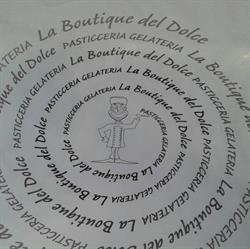 PASTICCERIA GELATERIA La Boutique del Dolce
La Boutique del Dolce PASTICCERIA GELATERIA
La Boutique del Dolce PASTICCERIA GELATERIA
PASTICCERIA GELATERIA La Boutique del Dolce
PASTICCERIA GELATERIA
PASTICCERIA GELATERIA
La Boutique del Dolce PASTICCERIA GELATERIA
La Boutique del Dolce PASTICCERIA GELATERIA La Boutique del Dolce
PASTICCERIA GELATERIA La Boutique del Dolce